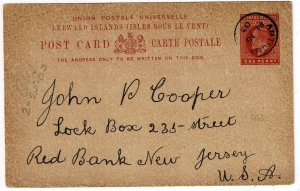 UNION POSTALE UNIVERSELLE
LEEWARD ISLANDS (ISLES SOUS LE VENT)
POST CARD CARTE POSTALE
THE ADDRESS ONLY TO BE WRITTEN ON THIS SIDE.
ONE PENNY
John P Cooper
Lock Box 235-street
Red Bank New Jersey
U.S.A.